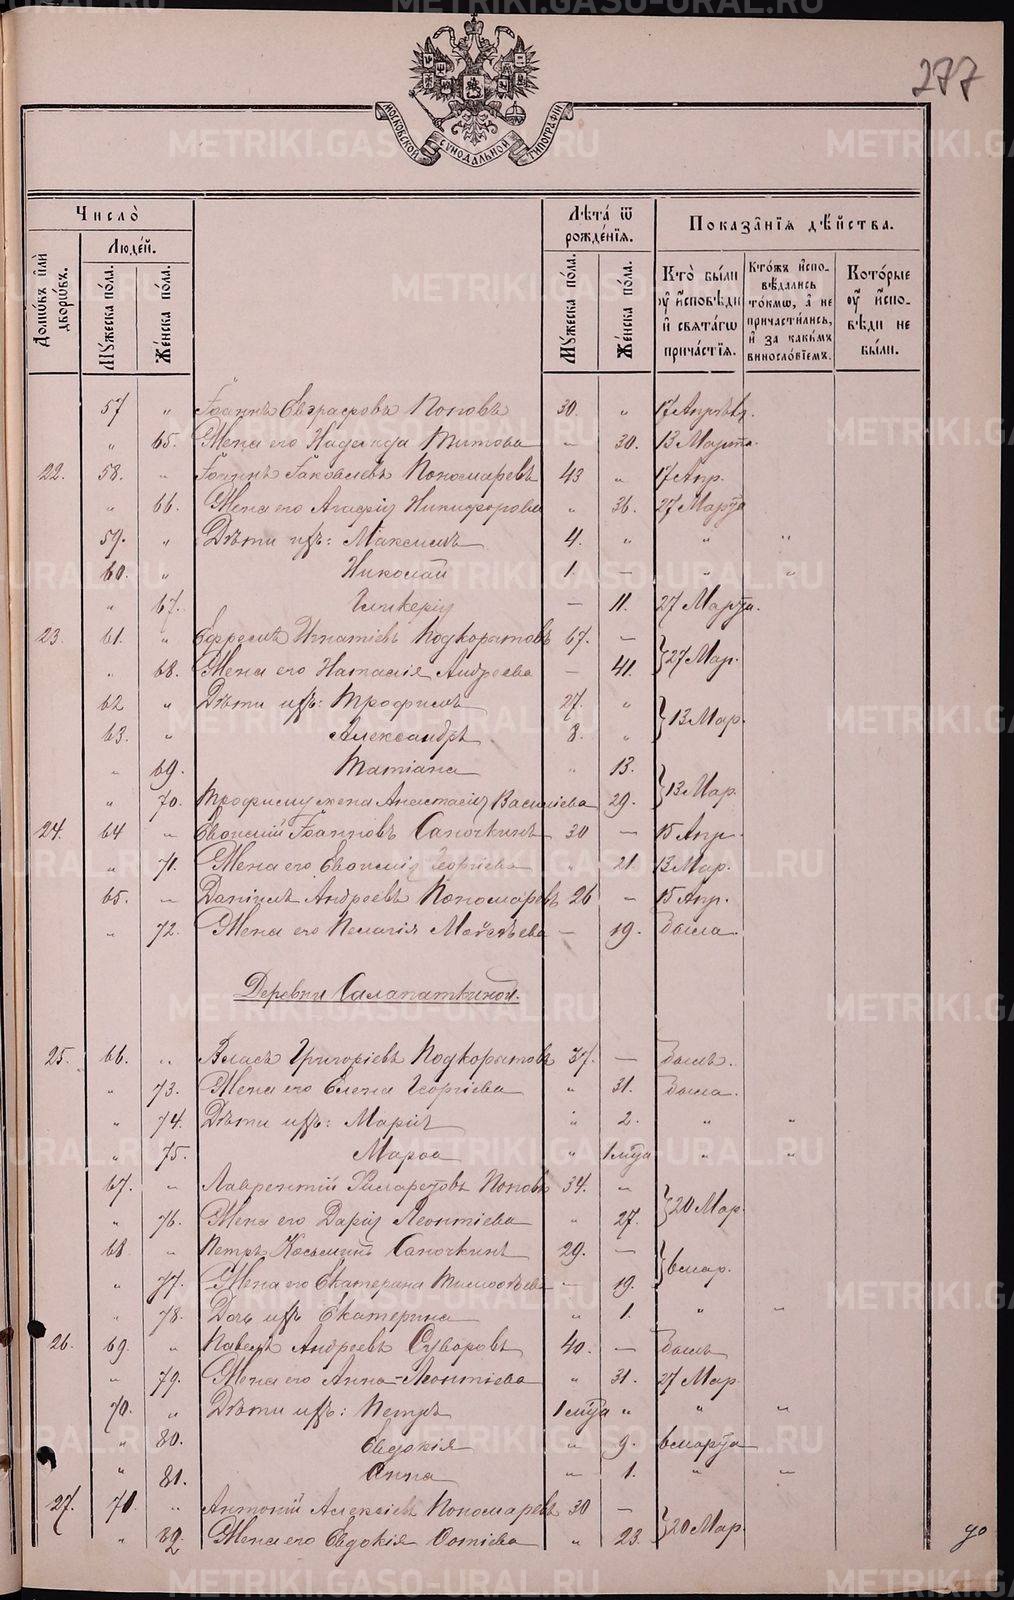 277
МОСКОВСКОЙ СѴНОДАЛЬНОЙ ТИПОГРАФІИ
Число̀
Домѡвъ и҆лѝ дворѡ́въ.
Люде́й.
Мꙋ́жеска по́ла.
Же́нска по́ла.
Лѣ́та ѿ рожде́нїѧ.
Мꙋ́жеска по́ла.
Же́нска по́ла.
Показа́нїѧ дѣ́йства.
Кто̀ бы́ли ᲂу҆ и҆сповѣ́ди и҆ свѧта́гѡ прича́стїѧ.
Кто́жъ и҆спо-вѣ́дались то́кмѡ, а҆ не причасти́лись, и҆ за каки́мъ винослові́емъ.
Кото́рые ᲂу҆ и҆спо-вѣ́ди не бы́ли.
57 " Іоаннъ Евграфовъ Поповъ 30. " 17 Апрѣля.
" 65. Жена его Надежда Титова – 30. 13 Марта.
22. 58. " Іоаннъ Іаковлевъ Пономаревъ 43 " 17 Апр.
" 66. Жена его Агафія Никифорова " 36. 27 Марта
59. " Дѣти ихъ: Максимъ 4. " " "
60. " Николай 1 – " "
" 67. Гликерія – 11. 27 Марта.
23. 61. " Ефремъ Игнатіевъ Подкорытовъ 67. –
" 68. Жена его Наталія Андреева – 41. } 27 Мар.
62 " Дѣти ихъ: Трофимъ 27. "
63. " Александръ 8. " } 13 Мар.
" 69. Татіана " 13.
" 70. Трофиму жена Анастасія Василіева 29. } 13 Мар.
24. 64 " Евфимій Іоанновъ Сапочкинъ 30 – 15 Апр.
" 71. Жена его Евфимія Георгіева " 21. 13 Мар.
65. " Даніилъ Андреевъ Пономаревъ 26 " 15 Апр.
" 72. Жена его Пелагія Матѳеева – 19. была.
Деревни Салапаткиной.
25. 66. " Власъ Григоріевъ Подкорытовъ 37. – былъ.
" 73. Жена его Елена Георгіева " 31. была.
" 74. Дѣти ихъ: Марія " 2. " "
" 75. Марѳа " 1 мца " "
67. " Лаврентій Филаретовъ Поповъ 34. "
" 76. Жена его Дарія Леонтіева " 27. } 20 Мар.
68 " Петръ Косьминъ Сапочкинъ 29. –
" 77. Жена его Екатерина Тимоѳеева – 19. } 6 мар.
" 78. Дочь ихъ Екатерина " 1. " "
26. 69. " Павелъ Андреевъ Суворовъ 40. – былъ
" 79. Жена его Анна Леонтіева " 31. 27 Мар.
70. " Дѣти ихъ: Петръ 1 мца " " "
" 80. Евдокія " 9. 6 марта
" 81. Анна " 1. " "
27. 71. " Антоній Алексіевъ Пономаревъ 30 –
" 82 Жена его Евдокія Фотіева " 23. } 20 Мар.